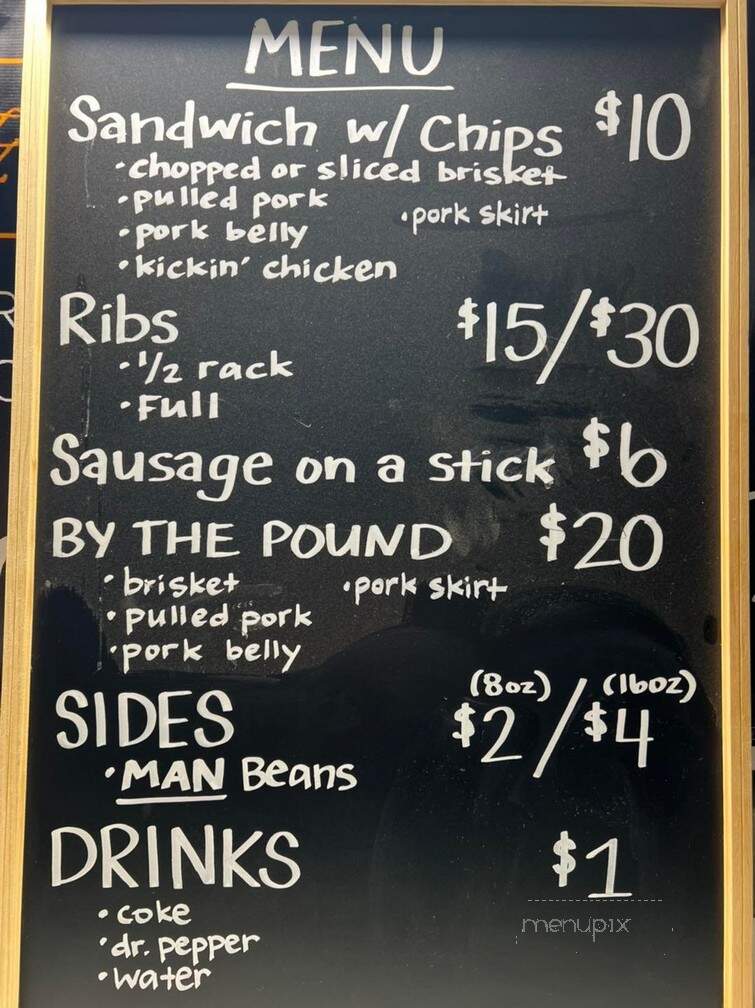 MENU
Sandwich w/ Chips $10
·chopped or sliced brisket
·pulled pork
·pork skirt
·pork belly
·kickin' chicken
Ribs $15/$30
·1/2 rack
·Full
Sausage on a stick $6
BY THE POUND $20
·brisket ·pork skirt
·pulled pork
·pork belly
(8oz) (16oz)
SIDES $2/$4
·MAN Beans
DRINKS $1
·coke
·dr. pepper
·water
menupix